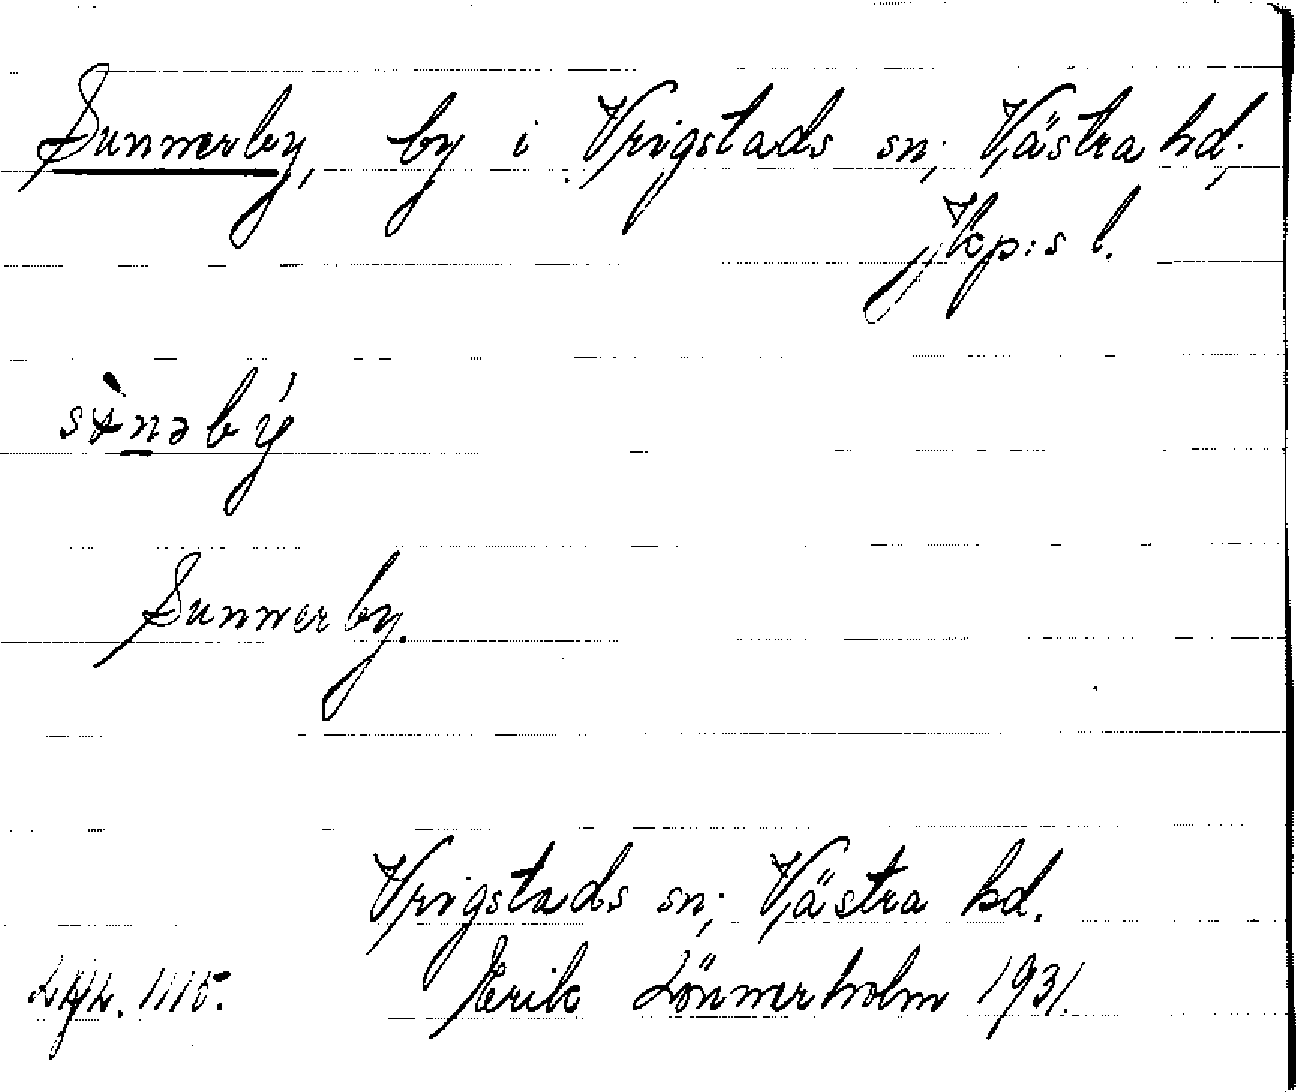 Sunnerby, by i Vrigstads sn; Västra hd;
Jkp:s l.
Sunnerby.
Vrigstads sn; Västra hd.
Erik Lönnerholm 1931.